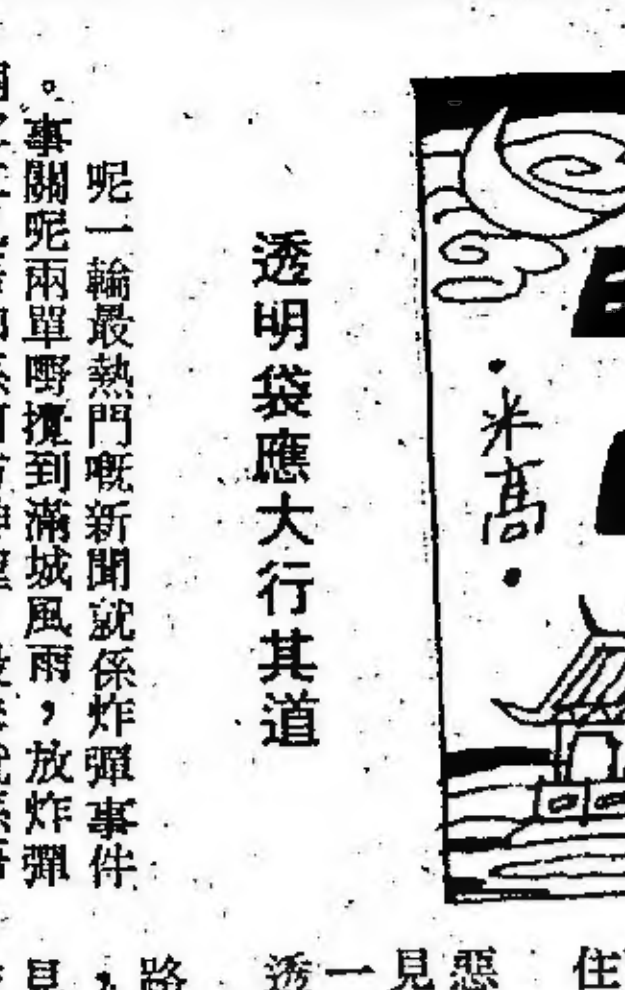 米高
透明袋應大行其道
呢一輪最熱門嘅新聞就係炸彈事件
。事關呢兩單嘢攪到滿城風雨,放炸彈
住
惡
見
一
透
路
,
見